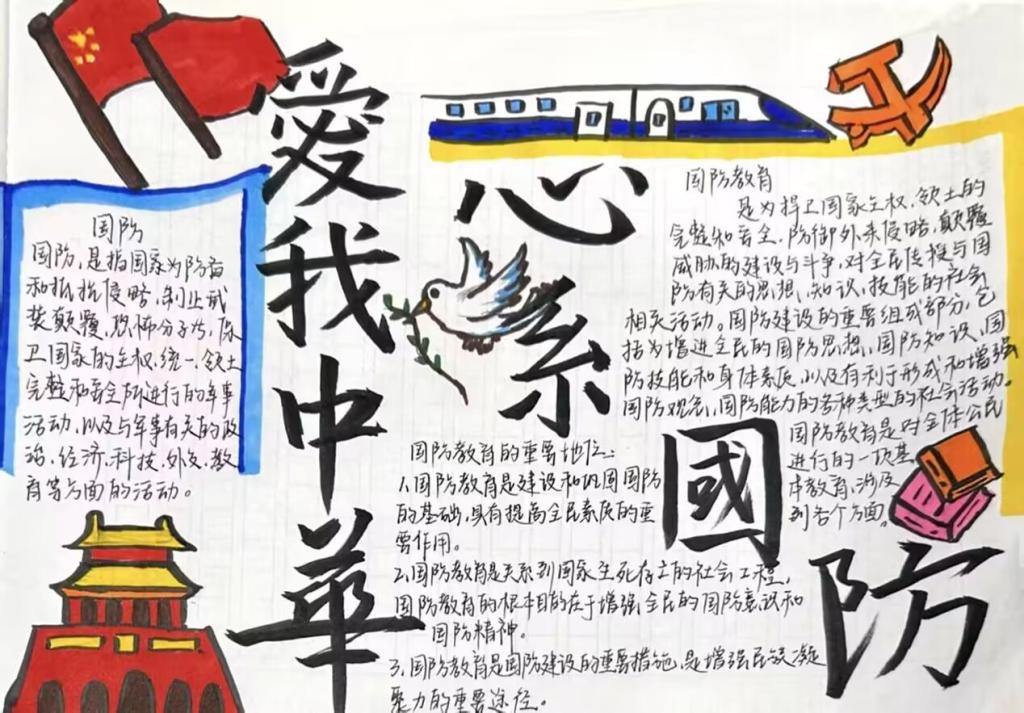 愛我中華
心系國防
国防
国防,是指国家为防备
和抵抗侵略,制止武
装颠覆,恐怖分子占,保
卫国家的主权,统一,领土
完整和安全所进行的军事
活动,以及与军事有关的政
治,经济,科技,外交,教
育等方面的活动。
国防教育
是为捍卫国家主权,领土的
完整和安全,防御外来侵略,颠覆
威胁的建设与斗争,对全民传授与国
防有关的思想,知识,技能的社会
相关活动。国防建设的重要组成部分,包
括为增进全民的国防思想,国防知识,国
防技能和身体素质,以及有利于形成和增强
国防观念,国防能力的各种类型的社会活动。
国防教育是对全体公民
进行的一项基
本教育,涉及
到各个方面。
国防教育的重要地位:
1.国防教育是建设和巩固国防
的基础,具有提高全民素质的重
要作用。
2.国防教育是关系到国家生死存立的社会工程,
国防教育的根本目的在于增强全民的国防意识和
国防精神。
3.国防教育是国防建设的重要措施,是增强民族凝
聚力的重要途径。